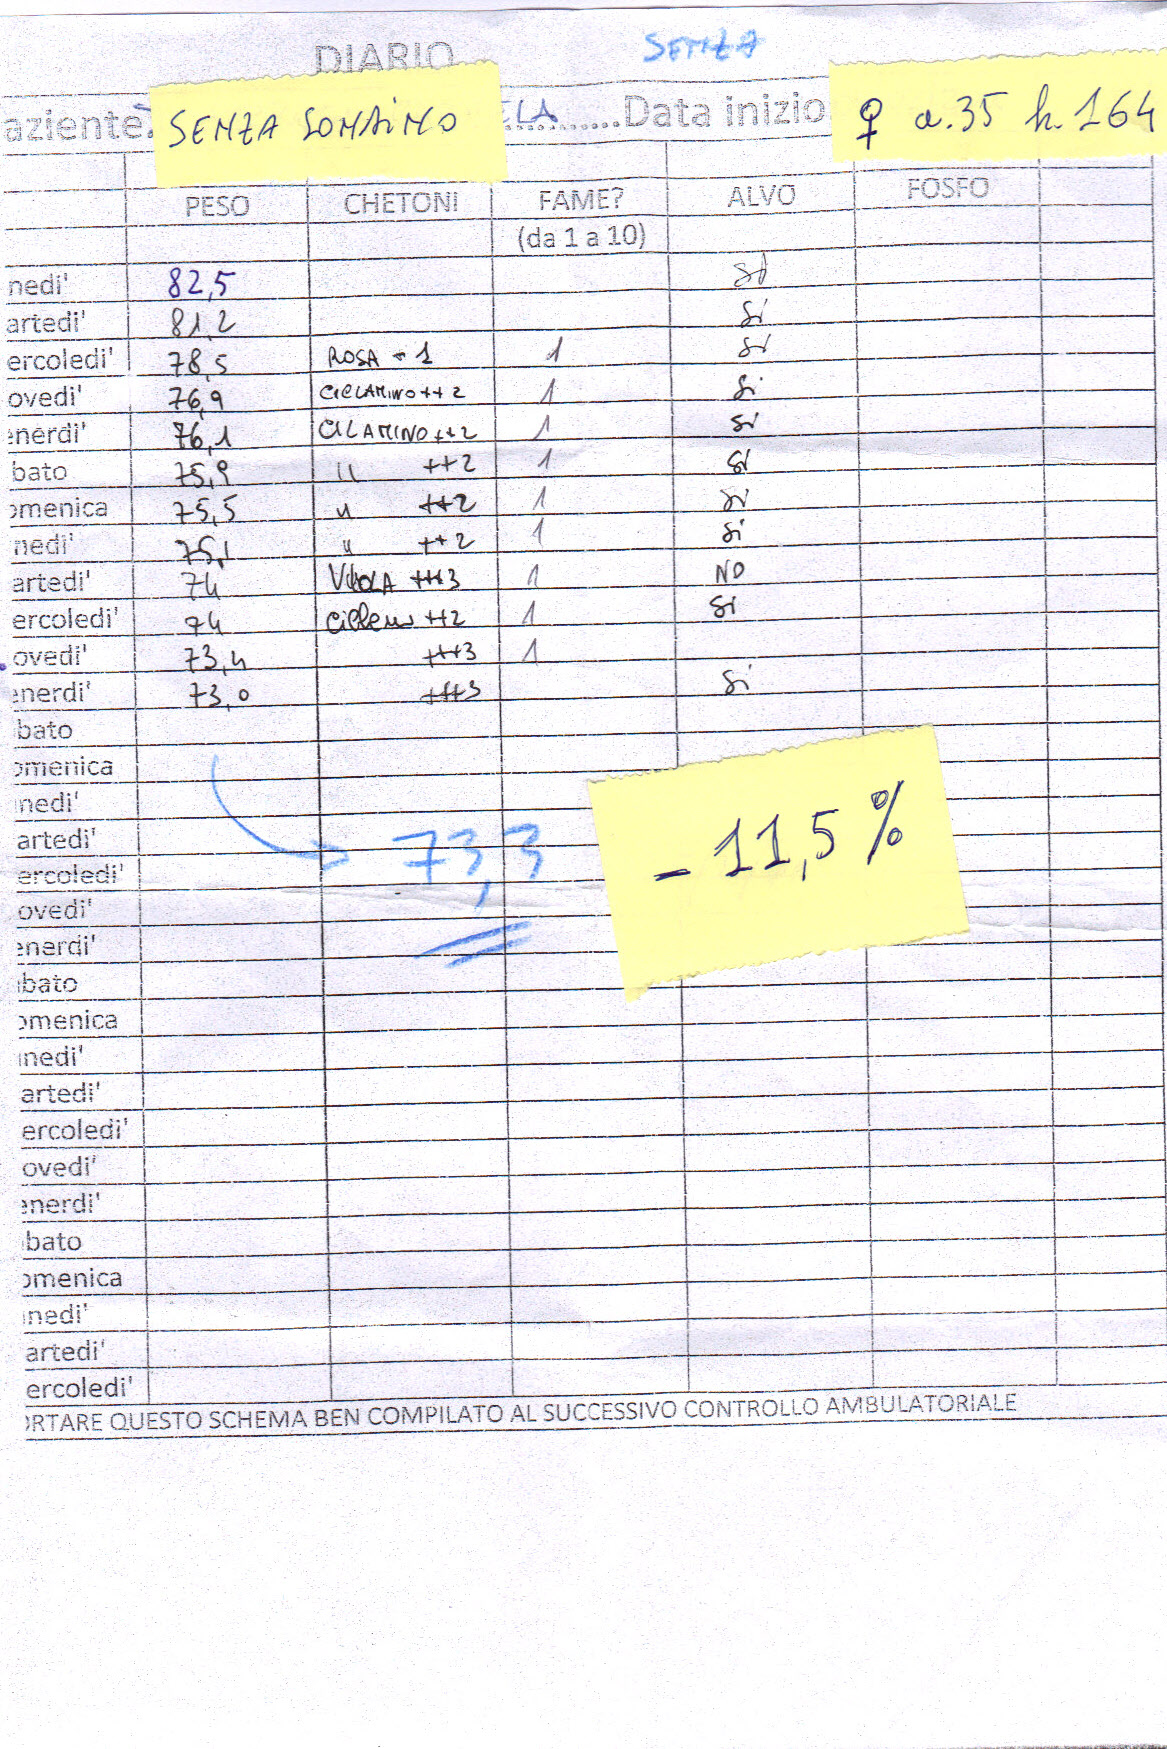 DIARIO SENZA
aziente. SENZA SONDINO ELA...........Data inizio ♀ a. 35 h. 164
PESO CHETONI FAME? ALVO FOSFO
(da 1 a 10)
nedi' 82,5 si
artedi' 81,2 si
ercoledi' 78,5 ROSA + 1 1 si
ovedi' 76,9 CICLAMINO ++ 2 1 si
enerdi' 76,1 CICLAMINO ++2 1 si
bato 75,9 " ++2 1 si
omenica 75,5 " ++2 1 si
nedi' 75,1 " ++2 1 si
artedi' 74 VIOLA +++3 1 NO
ercoledi' 74 ++2 1 si
ovedi' 73,4 +++3 1
enerdi' 73,0 +++3 si
bato
omenica
nedi'
artedi' 73,3 - 11,5 %
ercoledi'
ovedi'
enerdi'
bato
omenica
nedi'
artedi'
ercoledi'
ovedi'
enerdi'
bato
omenica
nedi'
artedi'
ercoledi'
ORTARE QUESTO SCHEMA BEN COMPILATO AL SUCCESSIVO CONTROLLO AMBULATORIALE